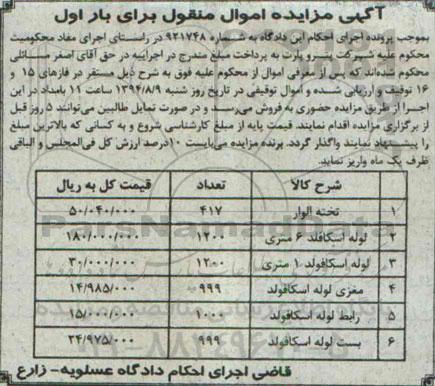 آگهی مزایده اموال منقول برای بار اول
بموجب پرونده اجرای احکام این دادگاه به شماره ۹۲۱۷۴۸ در راستای اجرای مفاد محکومیت
محکوم علیه شرکت پترو پارت به پرداخت مبلغ مندرج در اجراییه در حق آقای اصغر مسائلی
محکوم شده‌اند که پس از معرفی اموال از محکوم علیه فوق به شرح ذیل مستقر در فازهای ۱۵ و
۱۶ توقیف و ارزیابی شده و اموال توقیفی در تاریخ روز شنبه ۱۳۹۴/۸/۹ ساعت ۱۱ بامداد در این
اجرا از طریق مزایده حضوری به فروش می‌رسد و در صورت تمایل طالبین می‌توانند ۵ روز قبل
از برگزاری مزایده اقدام نمایند. قیمت پایه از مبلغ کارشناسی شروع و به کسانی که بالاترین مبلغ
را پیشنهاد نمایند واگذار گردد. برنده مزایده می‌بایست ۱۰درصد ارزش کل فی‌المجلس و الباقی
ظرف یک ماه واریز نماید.
شرح کالا تعداد قیمت کل به ریال
۱ تخته الوار ۴۱۷ ۵۰/۰۴۰/۰۰۰
۲ لوله اسکافلد ۶ متری ۱۲۰۰ ۱۸۰/۰۰۰/۰۰۰
۳ لوله اسکافولد ۱ متری ۱۲۰۰ ۳۰/۰۰۰/۰۰۰
۴ مغزی لوله اسکافولد ۹۹۹ ۱۴/۹۸۵/۰۰۰
۵ رابط لوله اسکافولد ۱۰۰۰ ۱۵/۰۰۰/۰۰۰
۶ بست لوله اسکافولد ۹۹۹ ۲۴/۹۷۵/۰۰۰
قاضی اجرای احکام دادگاه عسلویه- زارع